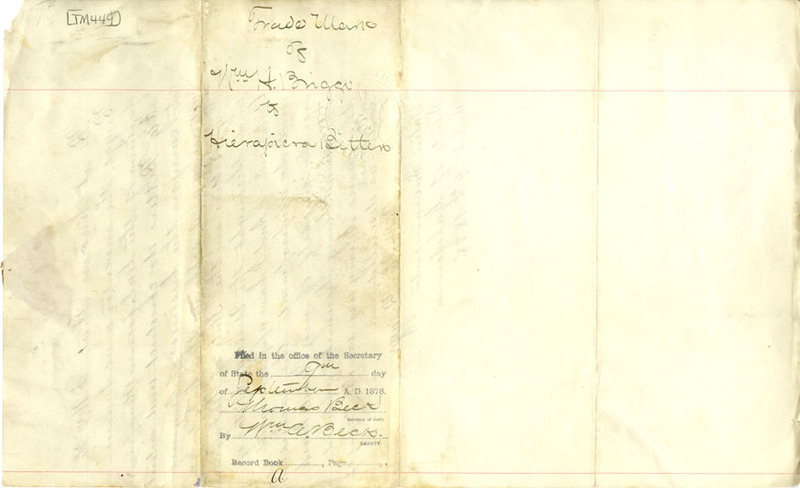 [TM449]
Trade Mark
of
Wm A. Briggs
to
Hierapicra Bitters
Filed in the office of the Secretary
of State the 9th day
of September A. D. 1878.
Thomas Beck
Secretary of State
By Wm A. Beck.
DEPUTY.
Record Book A, Page